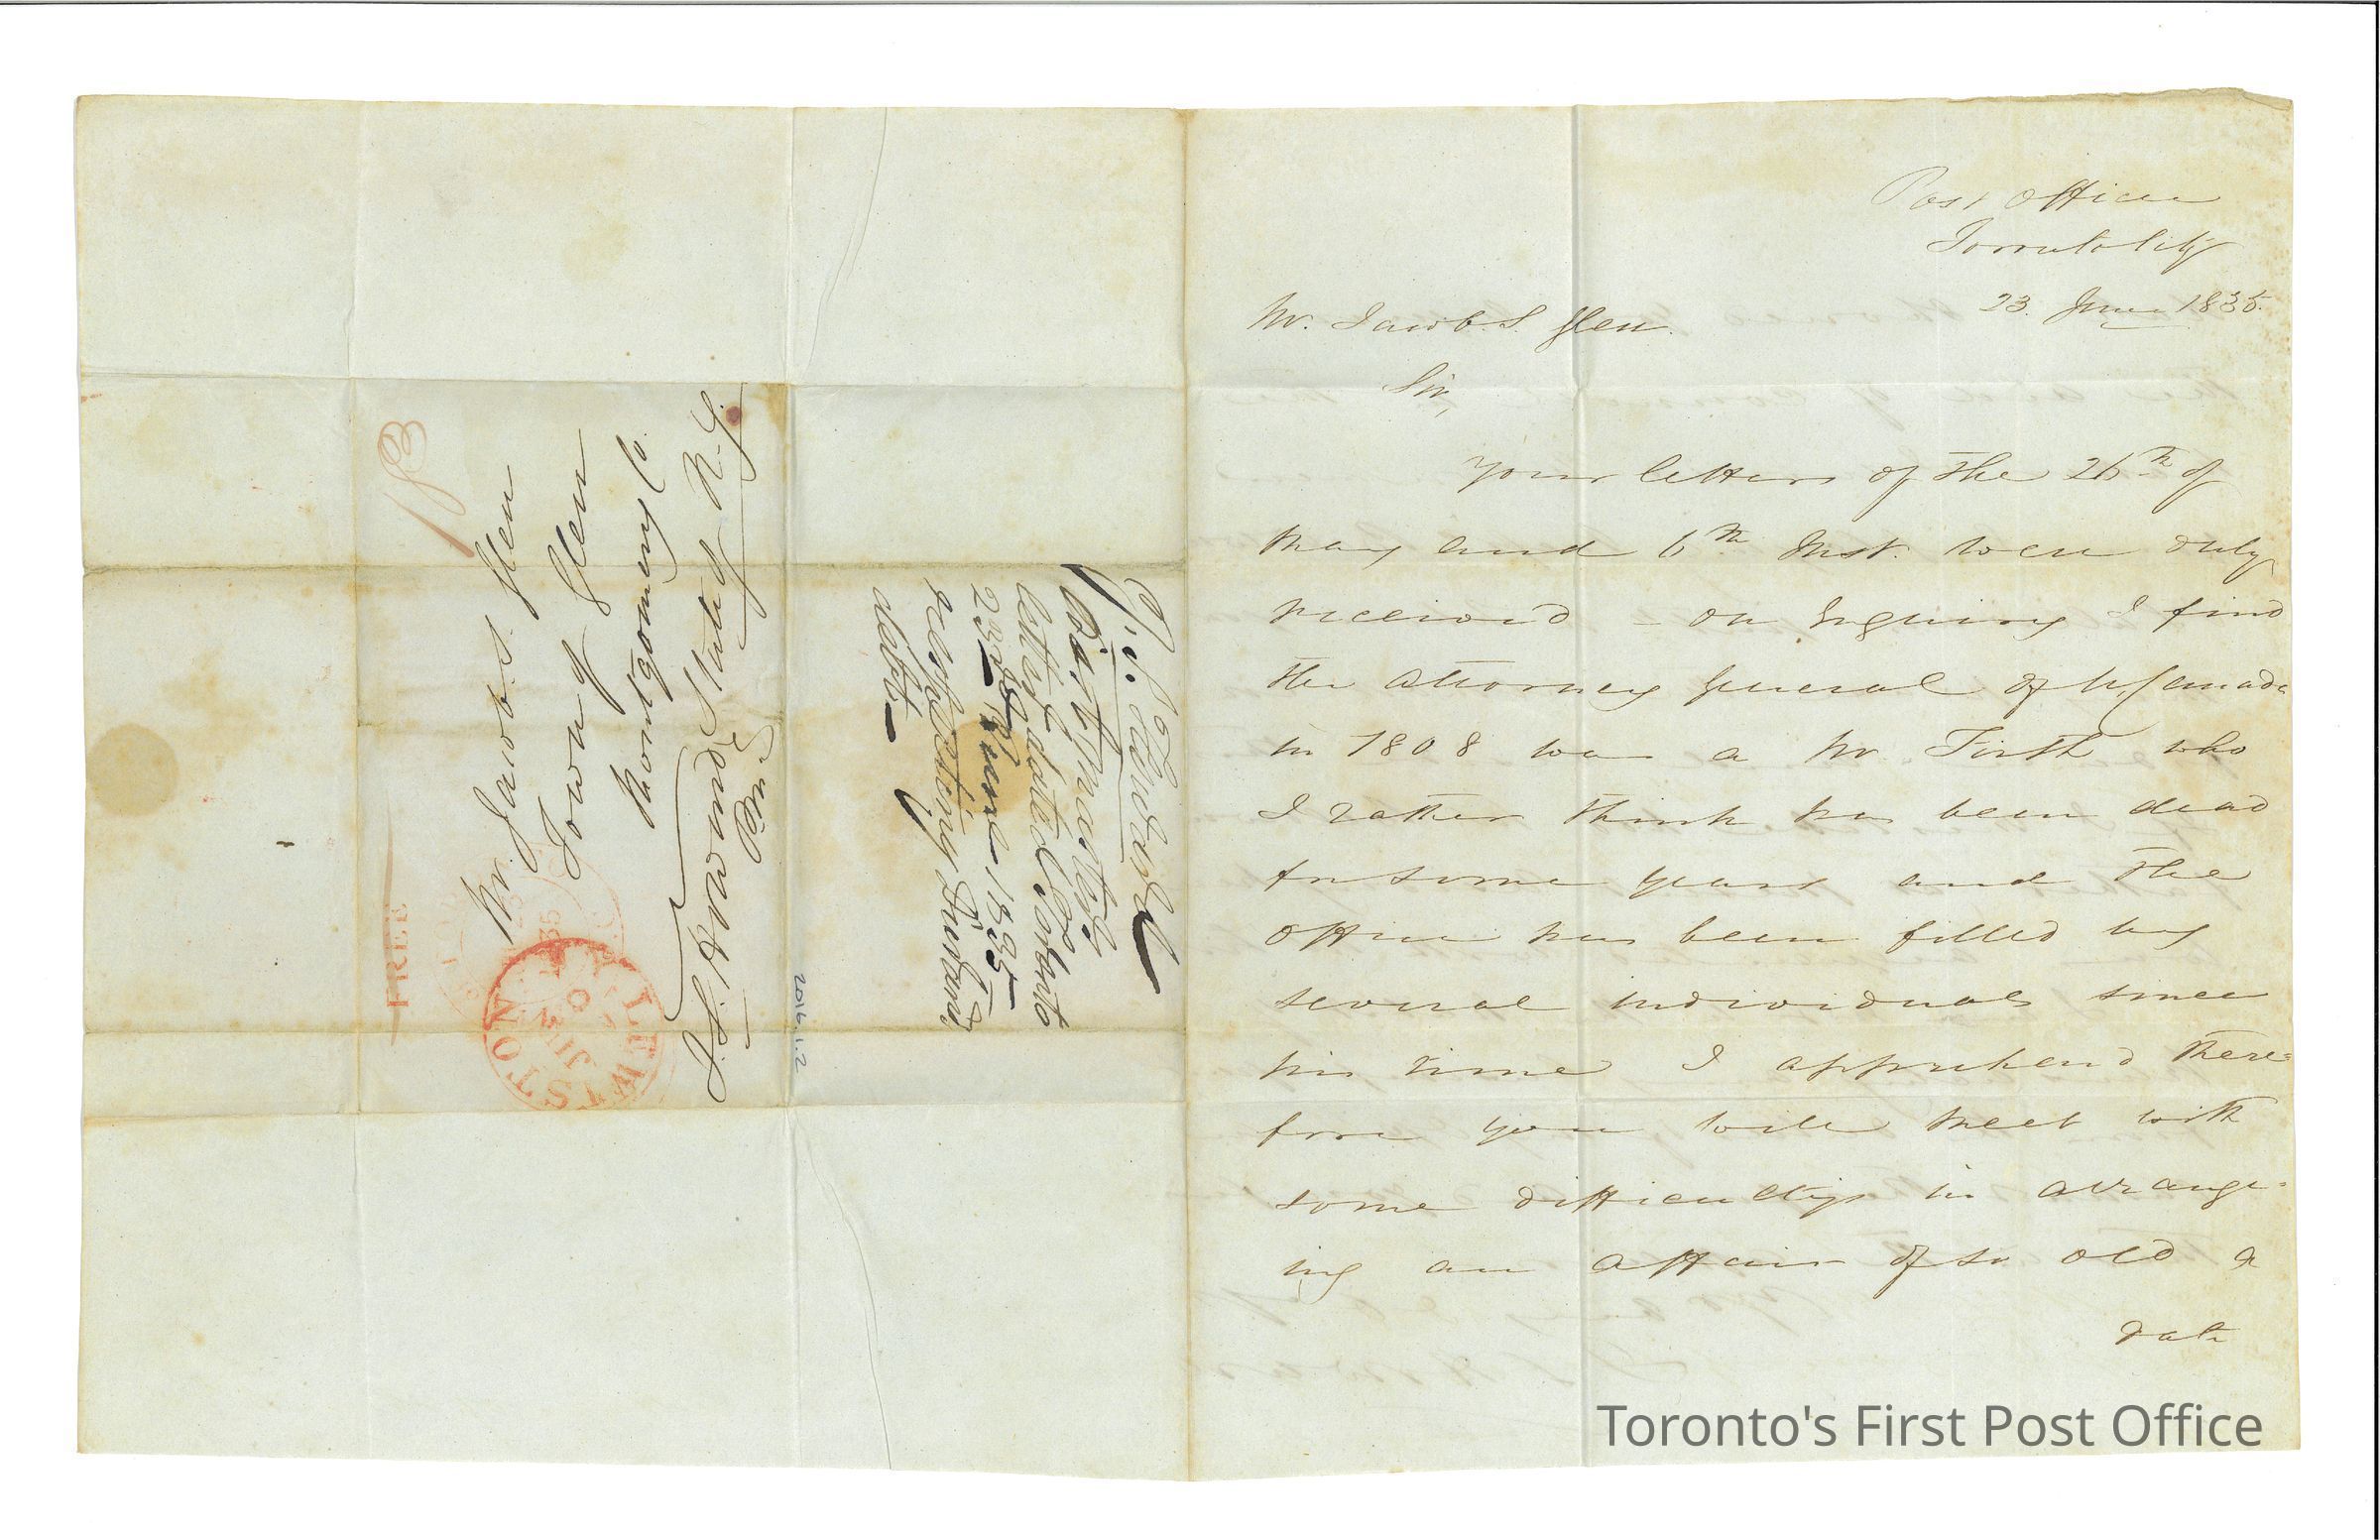 Post Office
Toronto City
23. June 1835.
Mr. Jacob S. Glen.
Sir,
Your letters of the 26th of
May and 6th Inst. were duly
received – on Inquiry I find
the Attorney General of U. Canada
in 1808 was a Mr. Firth who
I rather think has been dead
for some years and the
office has been filled by
several individuals since
his time I apprehend there=
fore you will meet with
some difficultys in arrange=
ing an affair of so old a
date
18
Mr. Jacob S. Glen
Town of Glen
Montgomery Co.
State of N.Y.
J.S. Howard
P.M.
FREE
LEWISTON
JUN
1835
Postmaster's
letter dated Toronto
23rd June 1835
respecting
debt
2016.1.2
Toronto's First Post Office